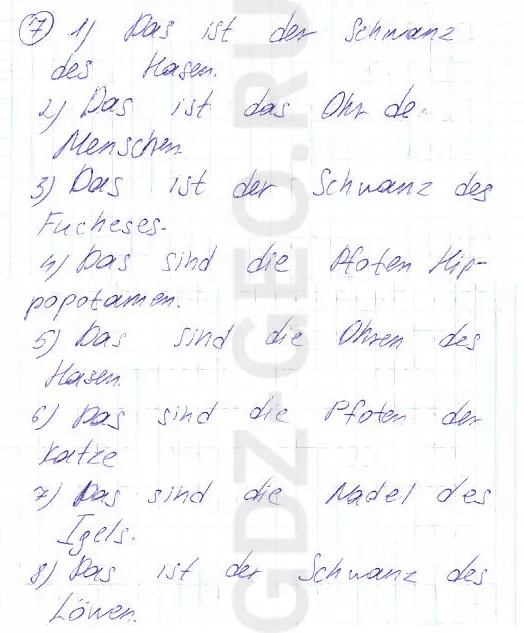 7 1) Das ist der Schwanz
des Hasen.
2) Das ist das Ohr de
Menschen
3) Das ist der Schwanz des
Fucheses.
4) Das sind die Pfoten Hip-
popotamen.
5) Das sind die Ohren des
Hasen.
6) Das sind die Pfoten der
Katze
7) Das sind die Nadel des
Igels.
8) Das ist der Schwanz des
Löwen.
GDZ-GEO.RU